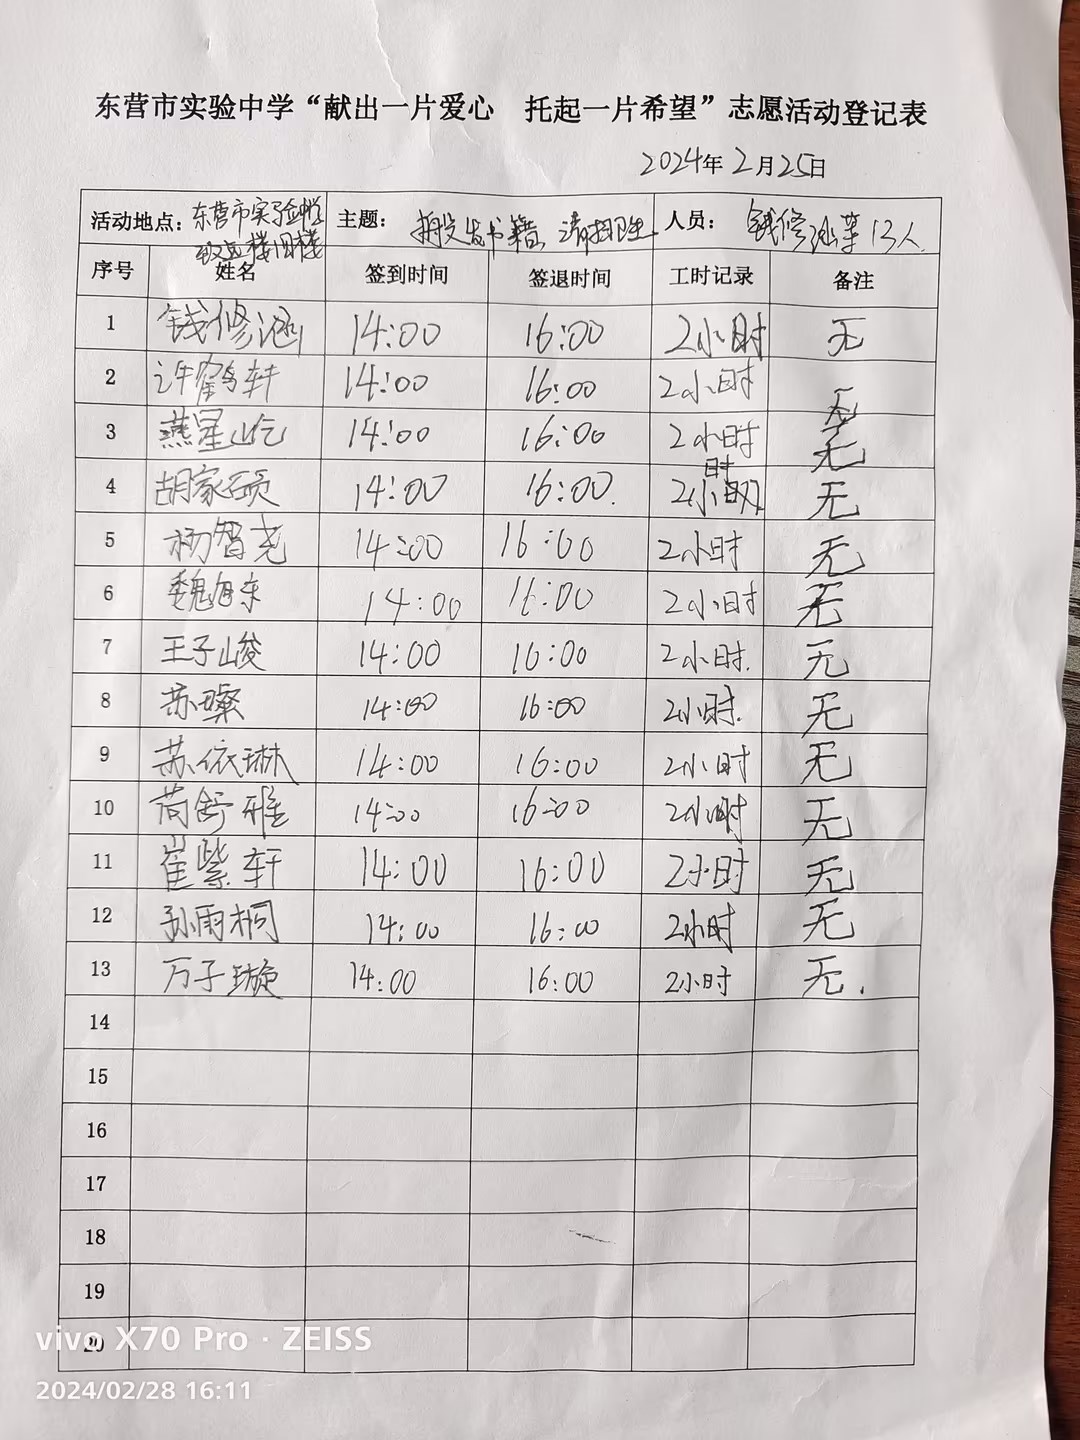 东营市实验中学“献出一片爱心 托起一片希望”志愿活动登记表
2024年2月25日
活动地点: 东营市实验中学 主题: 书籍、清扫卫生 人员: 钱修涵等13人.
楼
序号 姓名 签到时间 签退时间 工时记录 备注
1 钱修涵 14:00 16:00 2小时 无
2 许鹤轩 14:00 16:00 2小时 无
3 燕星屹 14:00 16:00 2小时 无
4 胡家硕 14:00 16:00. 2小时 无
5 杨智尧 14:00 16:00 2小时 无
6 魏旭东 14:00 16:00 2小时 无
7 王子峻 14:00 16:00 2小时. 无
8 苏璨 14:00 16:00 2小时. 无
9 苏依琳 14:00 16:00 2小时 无
10 荷舒雅 14:00 16:00 2小时 无
11 崔紫轩 14:00 16:00 2小时 无
12 孙雨桐 14:00 16:00 2小时 无
13 万子璇 14:00 16:00 2小时 无.
14
15
16
17
18
19
20
vivo X70 Pro · ZEISS
2024/02/28 16:11